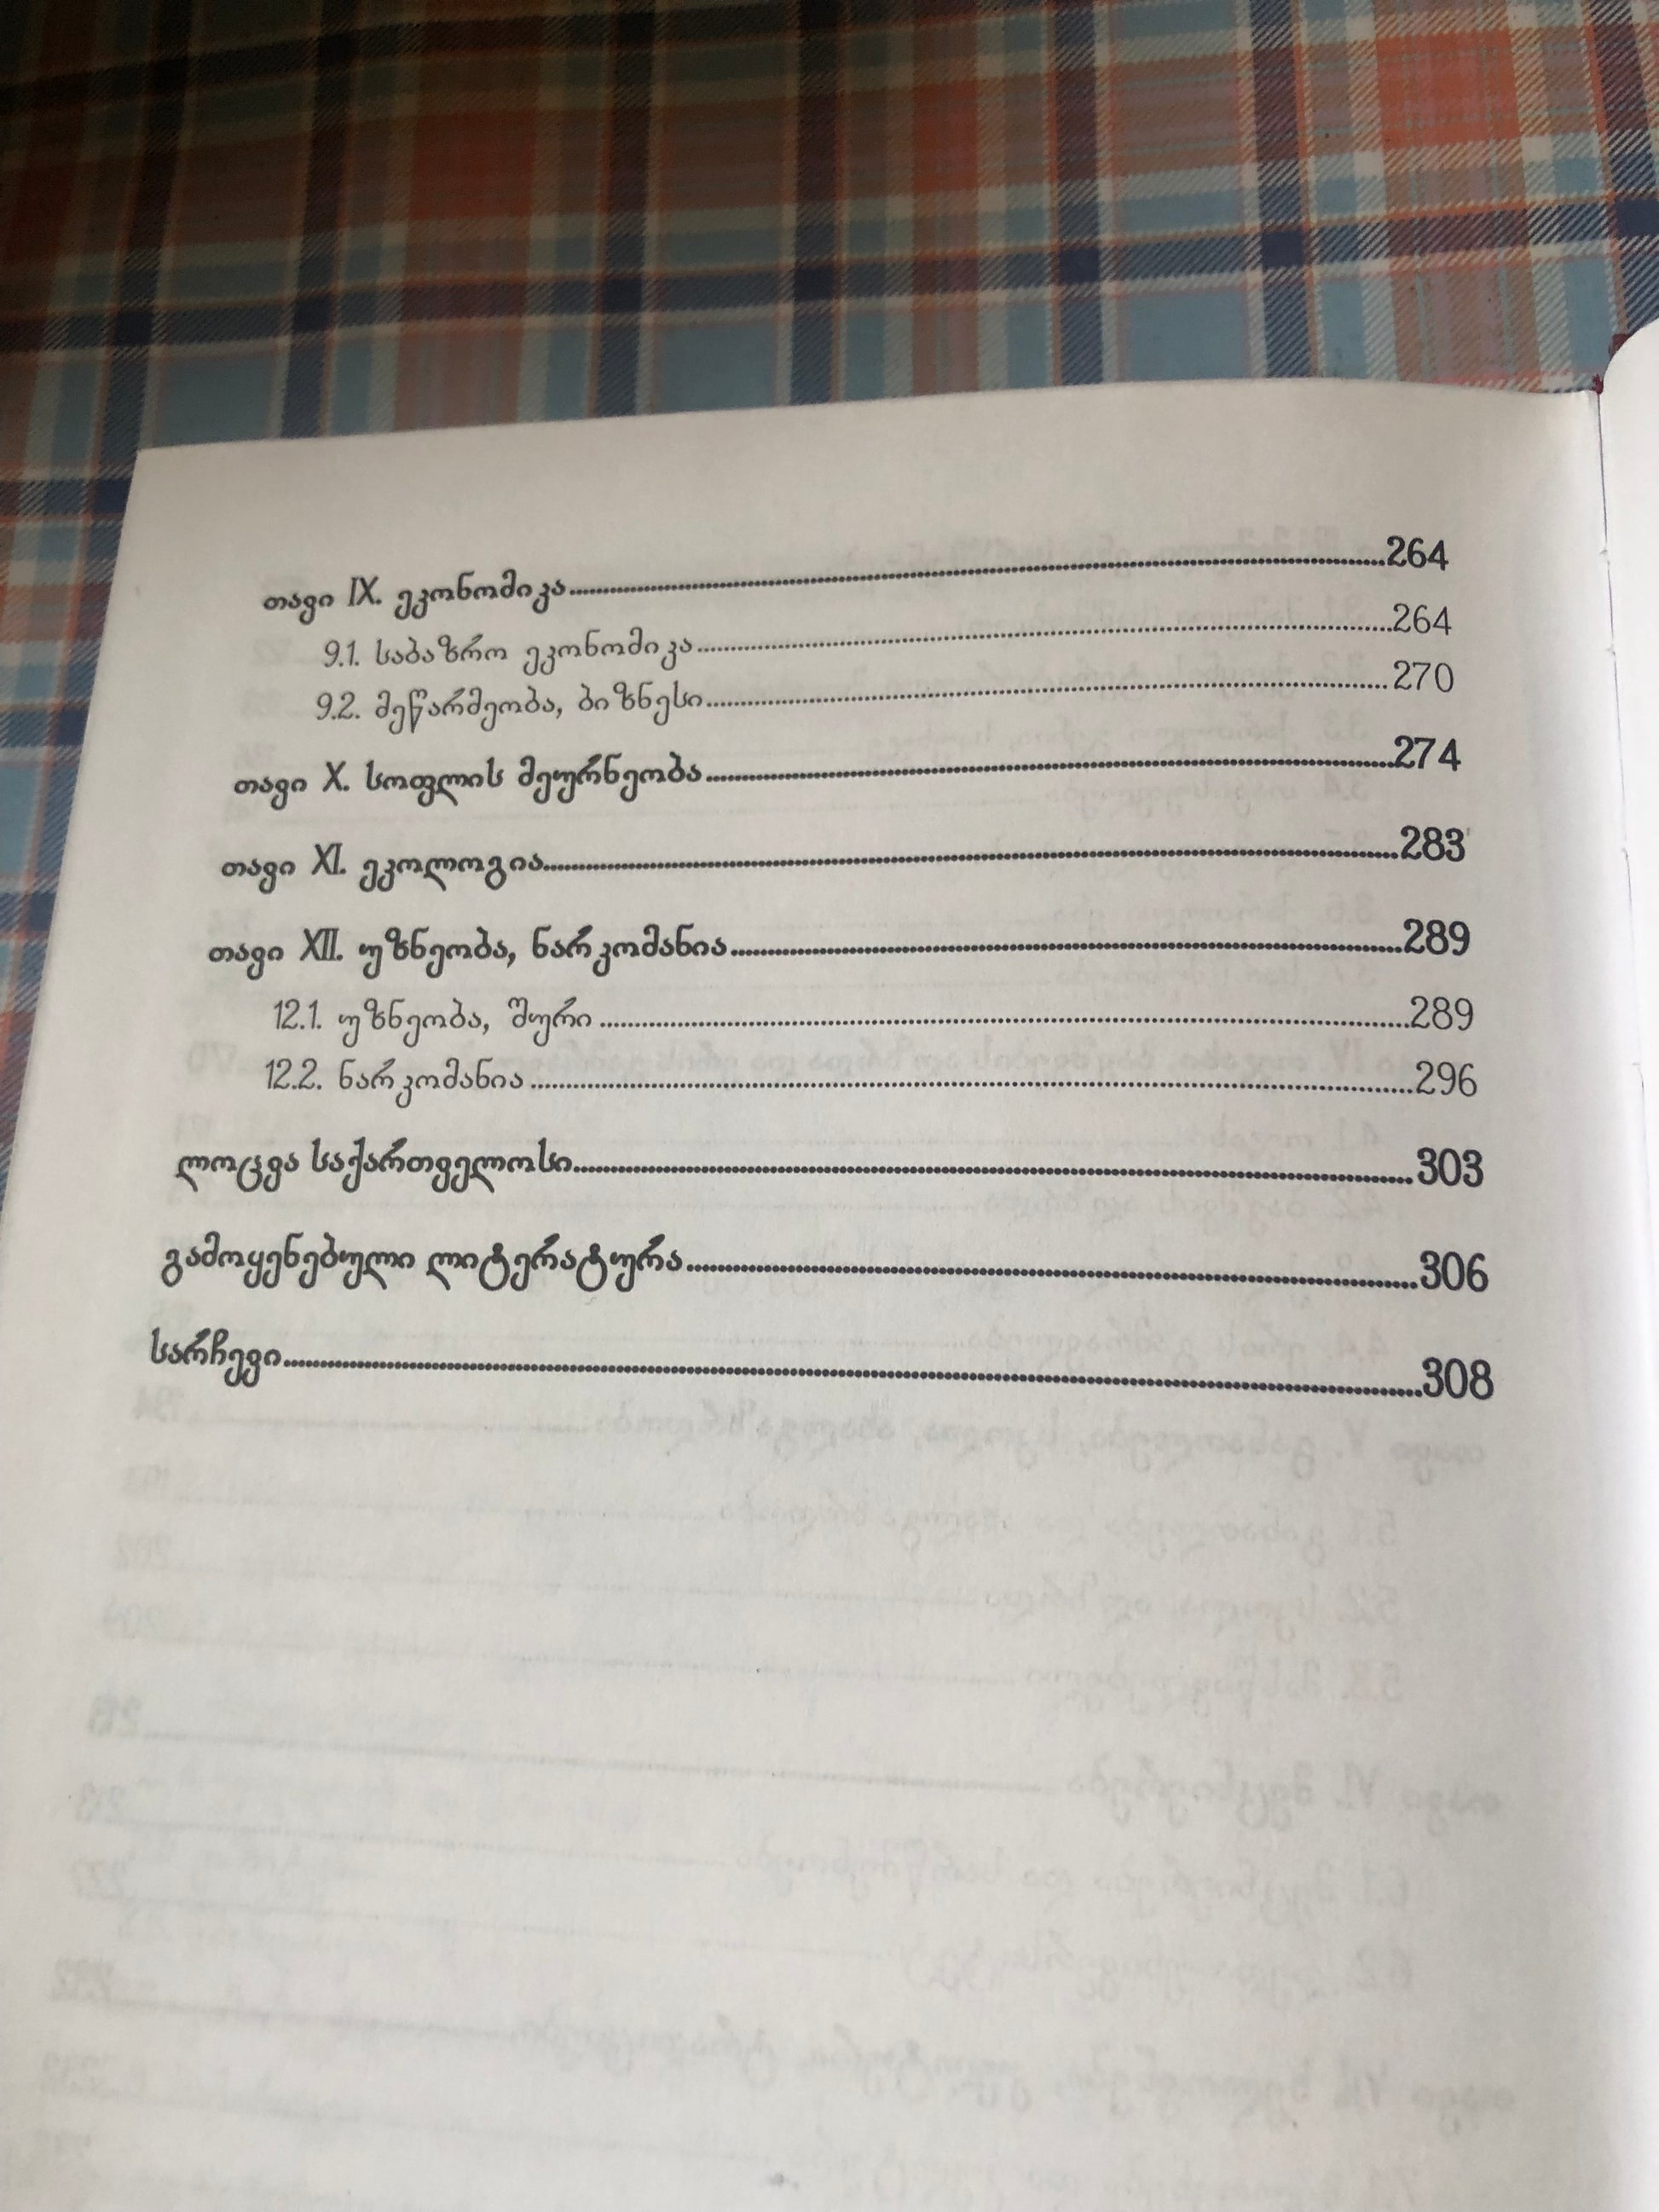 თავი IX. ეკონომიკა........................264
9.1. საბაზრო ეკონომიკა........................264
9.2. მეწარმეობა, ბიზნესი........................270
თავი X. სოფლის მეურნეობა........................274
თავი XI. ეკოლოგია........................283
თავი XII. უზნეობა, ნარკომანია........................289
12.1. უზნეობა, შური ........................289
12.2. ნარკომანია ........................296
ლოცვა საქართველოსი........................303
გამოყენებული ლიტერატურა........................306
სარჩევი........................308